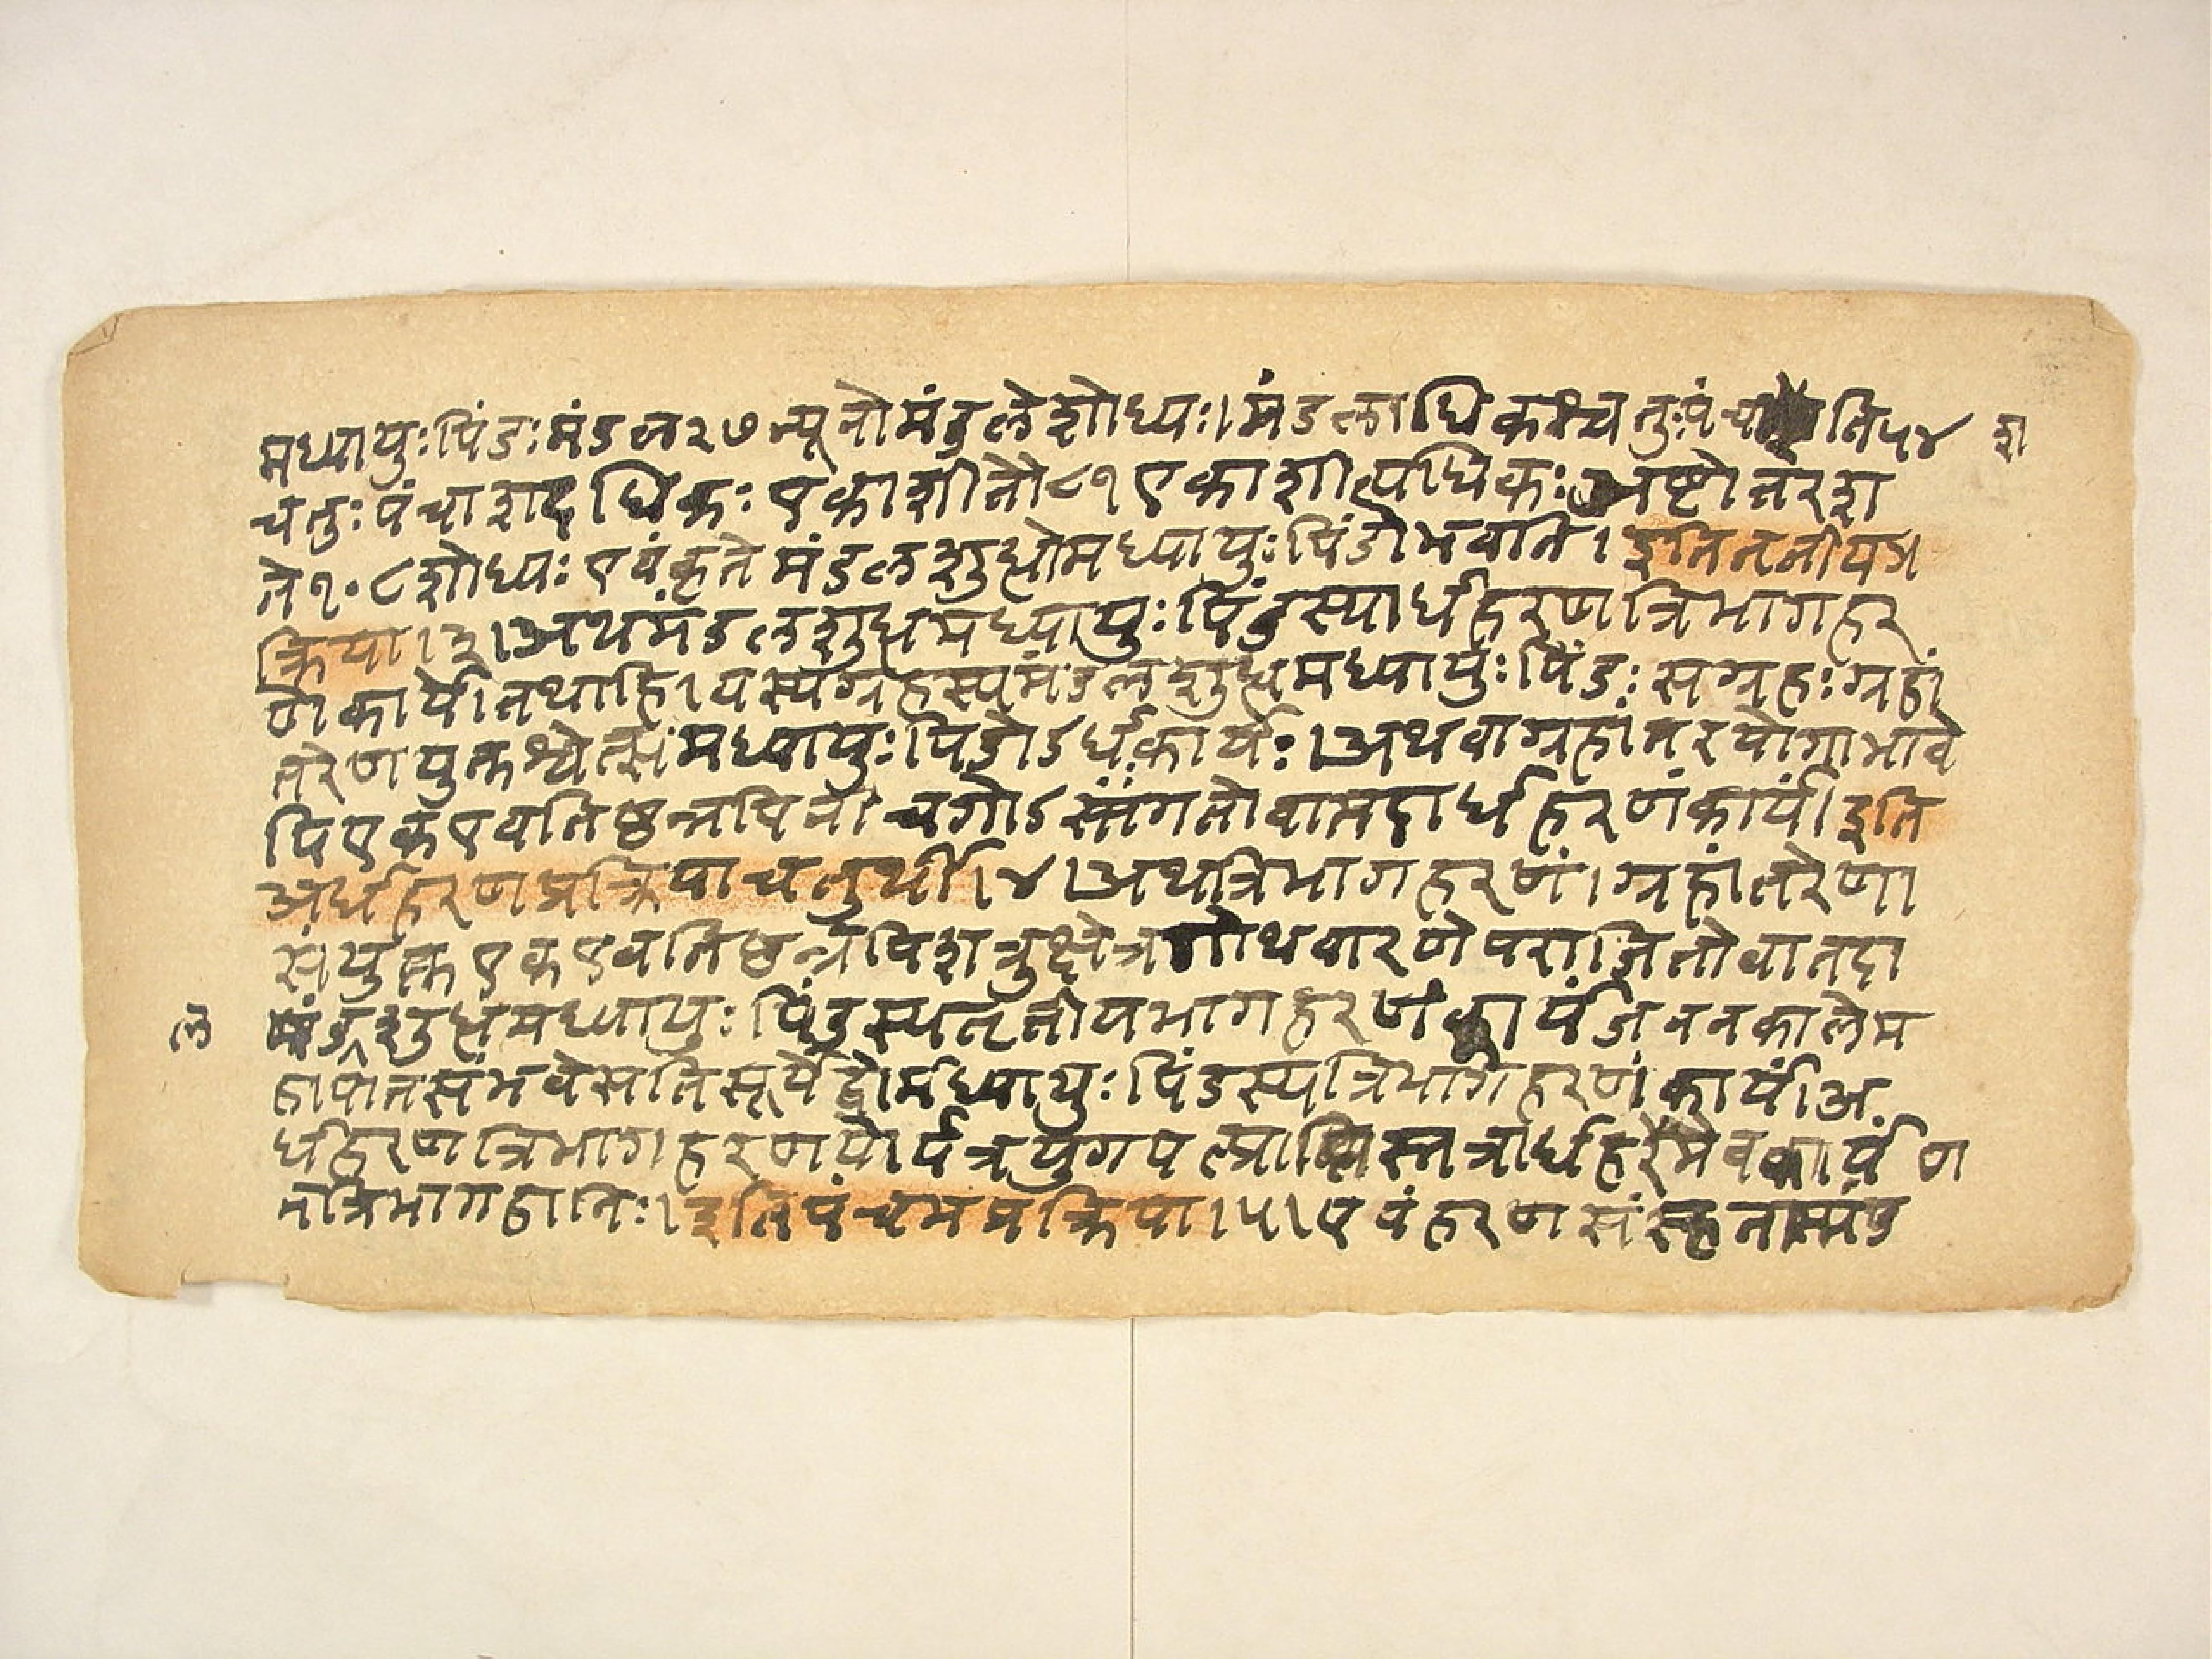 मध्यायुःपिंडःमंडल२७न्यूनोमंडलेशोध्यः।मंडलाधिकश्चतुःपंचा ति५४ श
चतुःपंचाशदधिकः एकाशीतौ८१एकाशीत्यधिकःअष्टोत्तरश
ते१०८शोध्यः एवंकृतेमंडलशुद्धोमध्यायुःपिंडोभवति। इतितृतीयप्र
क्रिया।३।अथमंडलशुद्धमध्यायुःपिंडस्यार्धहरणत्रिभागहर
णेकार्ये।तथाहि।यस्यग्रहस्यमंडलशुद्धमध्यायुःपिंडःसग्रहःग्रहां
तरेणयुक्तश्चेत्समध्यायुःपिंडोऽर्धकार्यः।अथवाग्रहांतरयोगाभावे
पिएकएवतिष्ठन्नपिनीचगोऽस्तंगतोवातदार्धहरणंकार्यं।इति
अर्धहरणप्रक्रियाचतुर्थी।४।अथत्रिभागहरणं।ग्रहांतरेणा
संयुक्तएकएवतिष्ठन्नपिशत्रुक्षेत्रगोथवारणेपराजितोवातदा
ले मंडशुद्धमध्यायुःपिंडस्यतृतीयभागहरणंकार्यंजननकालेम
हापातसंभवेसतिसूर्येंद्वोर्मध्यायुःपिंडस्यत्रिभागहरणंकार्यं।अ
र्धहरणत्रिभागहरणयोर्यत्रयुगपत्प्राप्तिस्तत्रार्धहरमेवकार्यं ण
नत्रिभागहानिः।इतिपंचमप्रक्रिया।५।एवंहरणसंस्कृतामंड